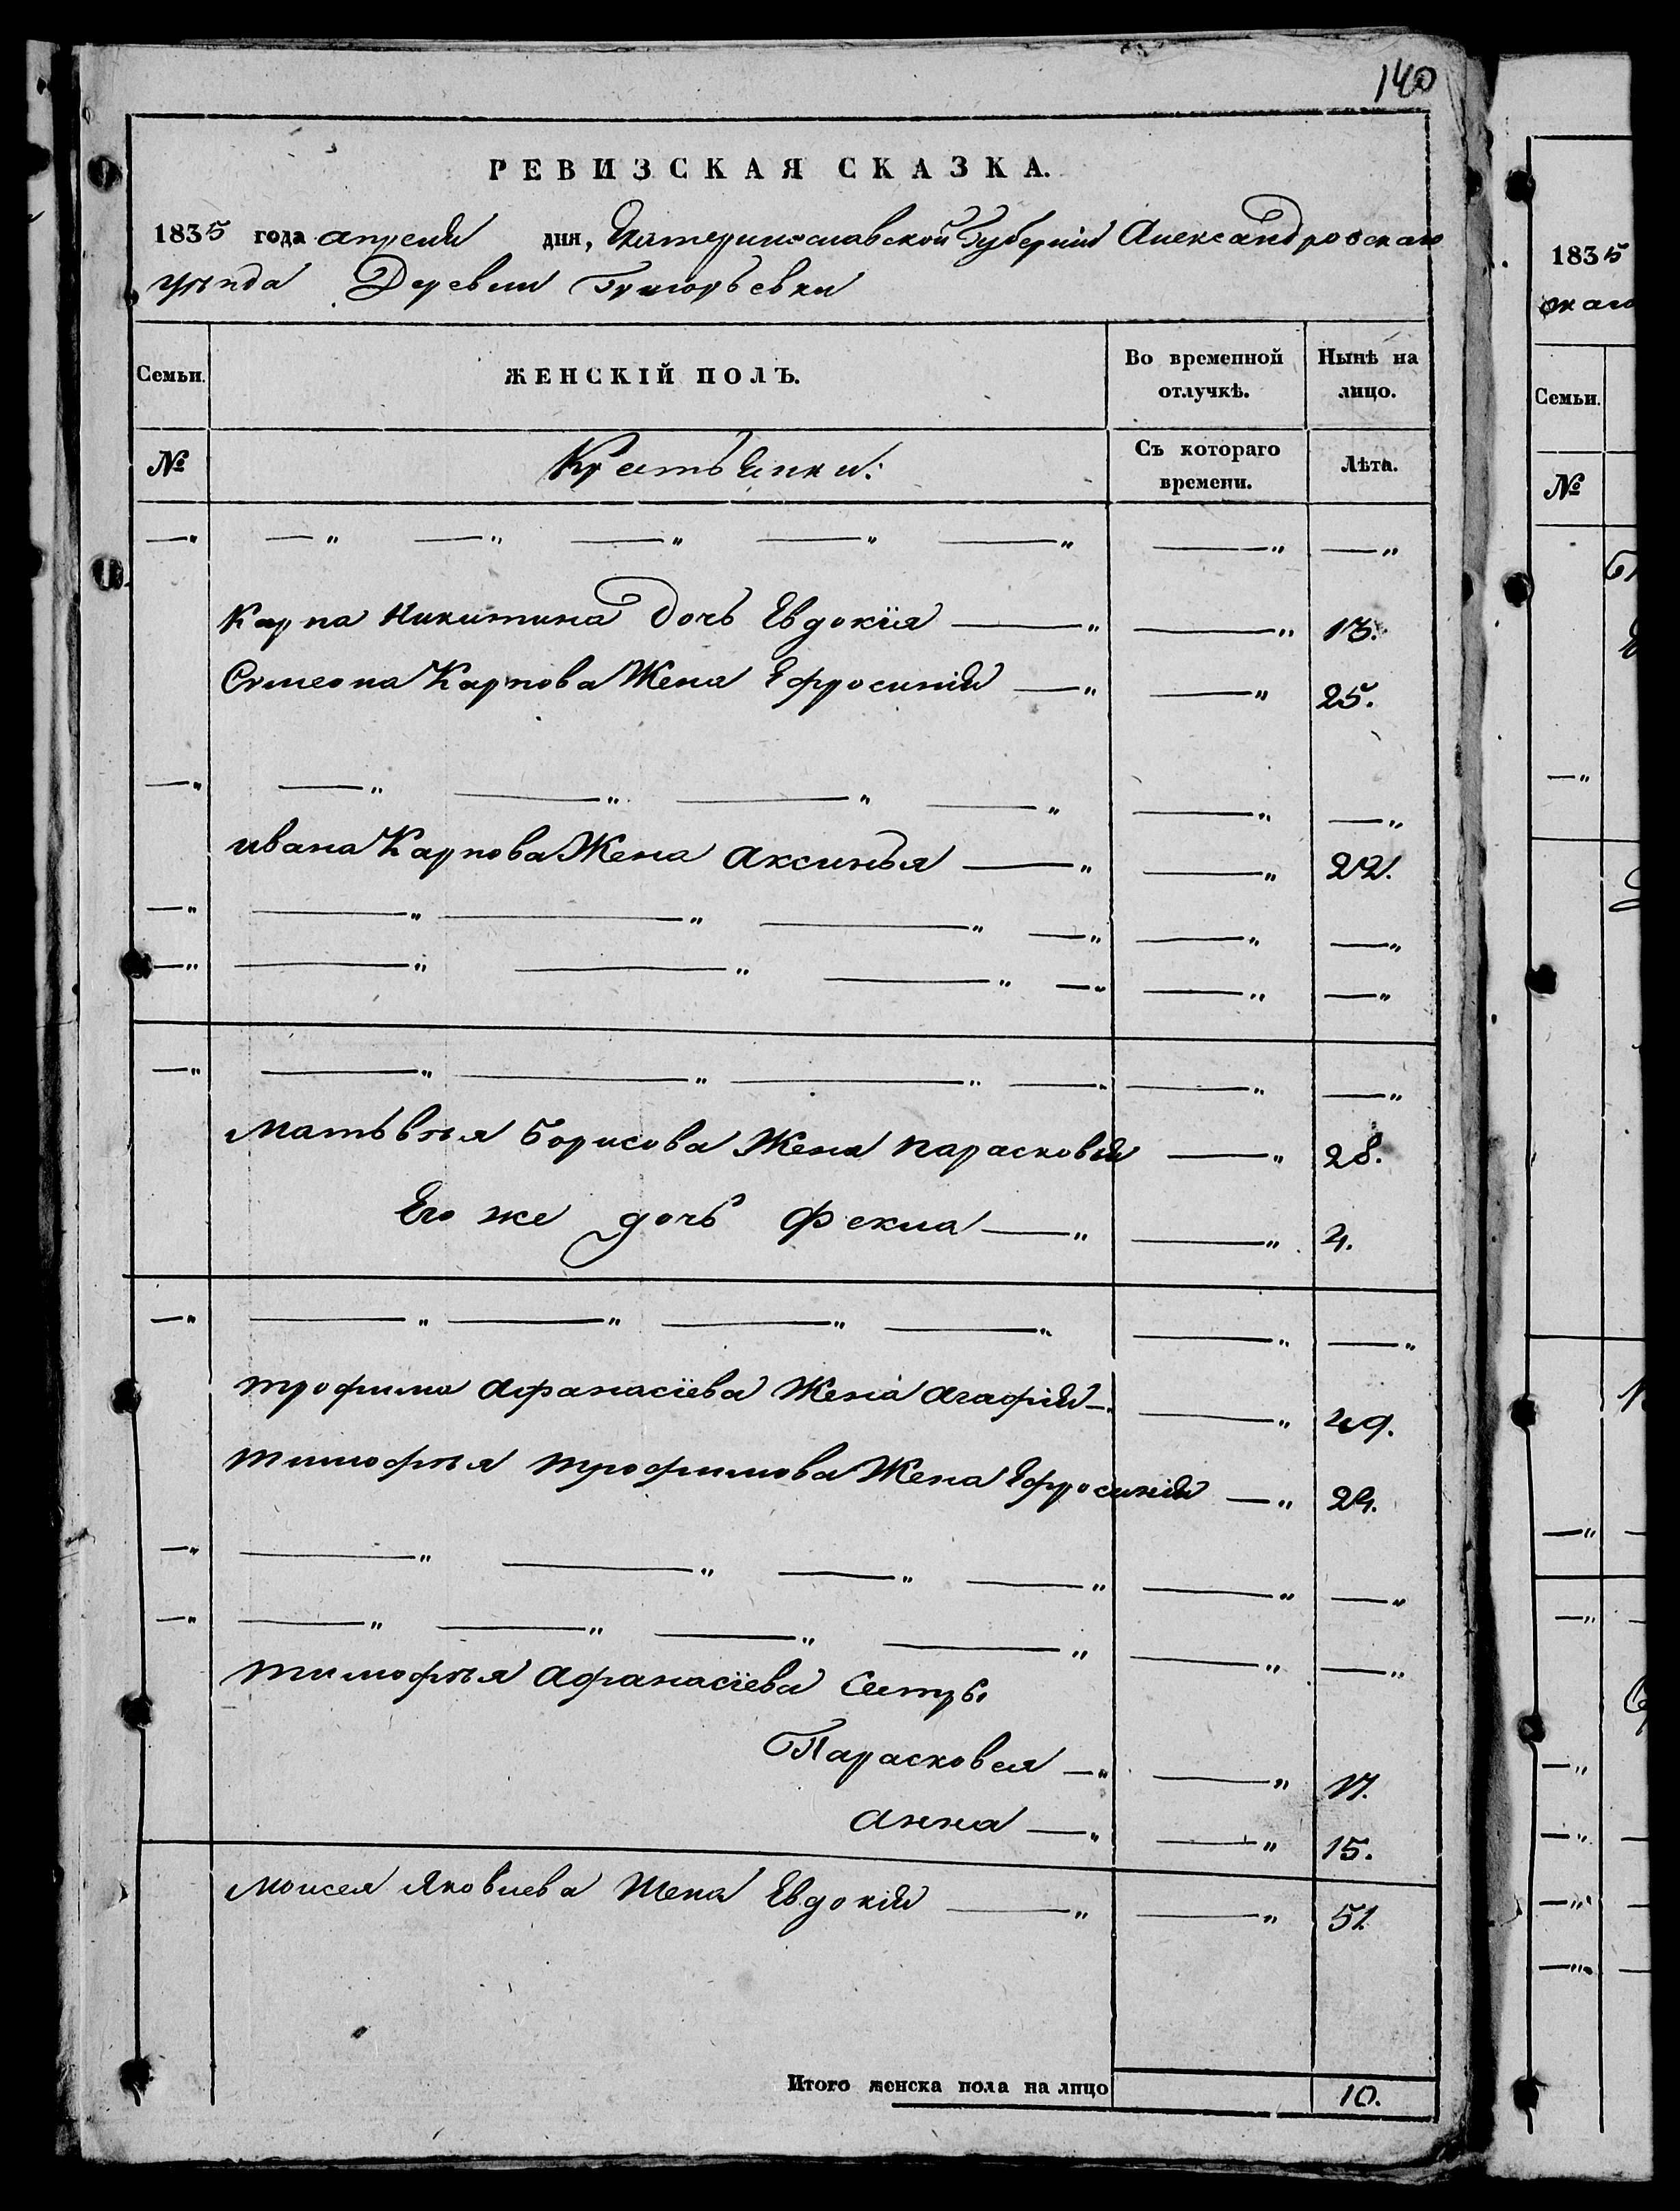 140
РЕВИЗСКАЯ СКАЗКА.
1835 года апреля дня, Екатеринославской Губерніи Александровскаго
уѣзда Деревни Григорьевки
Семьи. ЖЕНСКІЙ ПОЛЪ. Во временной отлучкѣ. Нынѣ на лицо.
№ Крестьянки: Съ котораго времени. Лѣта.
—„ —„ —„ —„ —„ —„ —„ —„
Карпа Никитина дочь Евдокія —„ —„ 13.
Семеона Карпова Жена Ефросинія —„ —„ 25.
—„ —„ —„ —„ —„ —„ —„
ивана Карпова Жена Аксинья —„ —„ 22.
—„ —„ —„ —„ —„ —„ —„
—„ —„ —„ —„ —„ —„ —„
—„ —„ —„ —„ —„ —„ —„
Матьвѣя Борисова Жена парасковія —„ 28.
Его же дочь Фекла —„ —„ 4.
—„ —„ —„ —„ —„ —„ —„
трофима Афанасіева Жена агафія —„ —„ 49.
тимофѣя трофимова Жена Ефросинія —„ 24.
—„ —„ —„ —„ —„ —„ —„
—„ —„ —„ —„ —„ —„ —„
тимофѣя Афанасіева Сестры
Парасковея —„ —„ 17.
анна —„ —„ 15.
Моисея Яковлева Жена Евдокія —„ —„ 51.
Итого женска пола на лицо 10.
1835
скаго
Семьи.
№